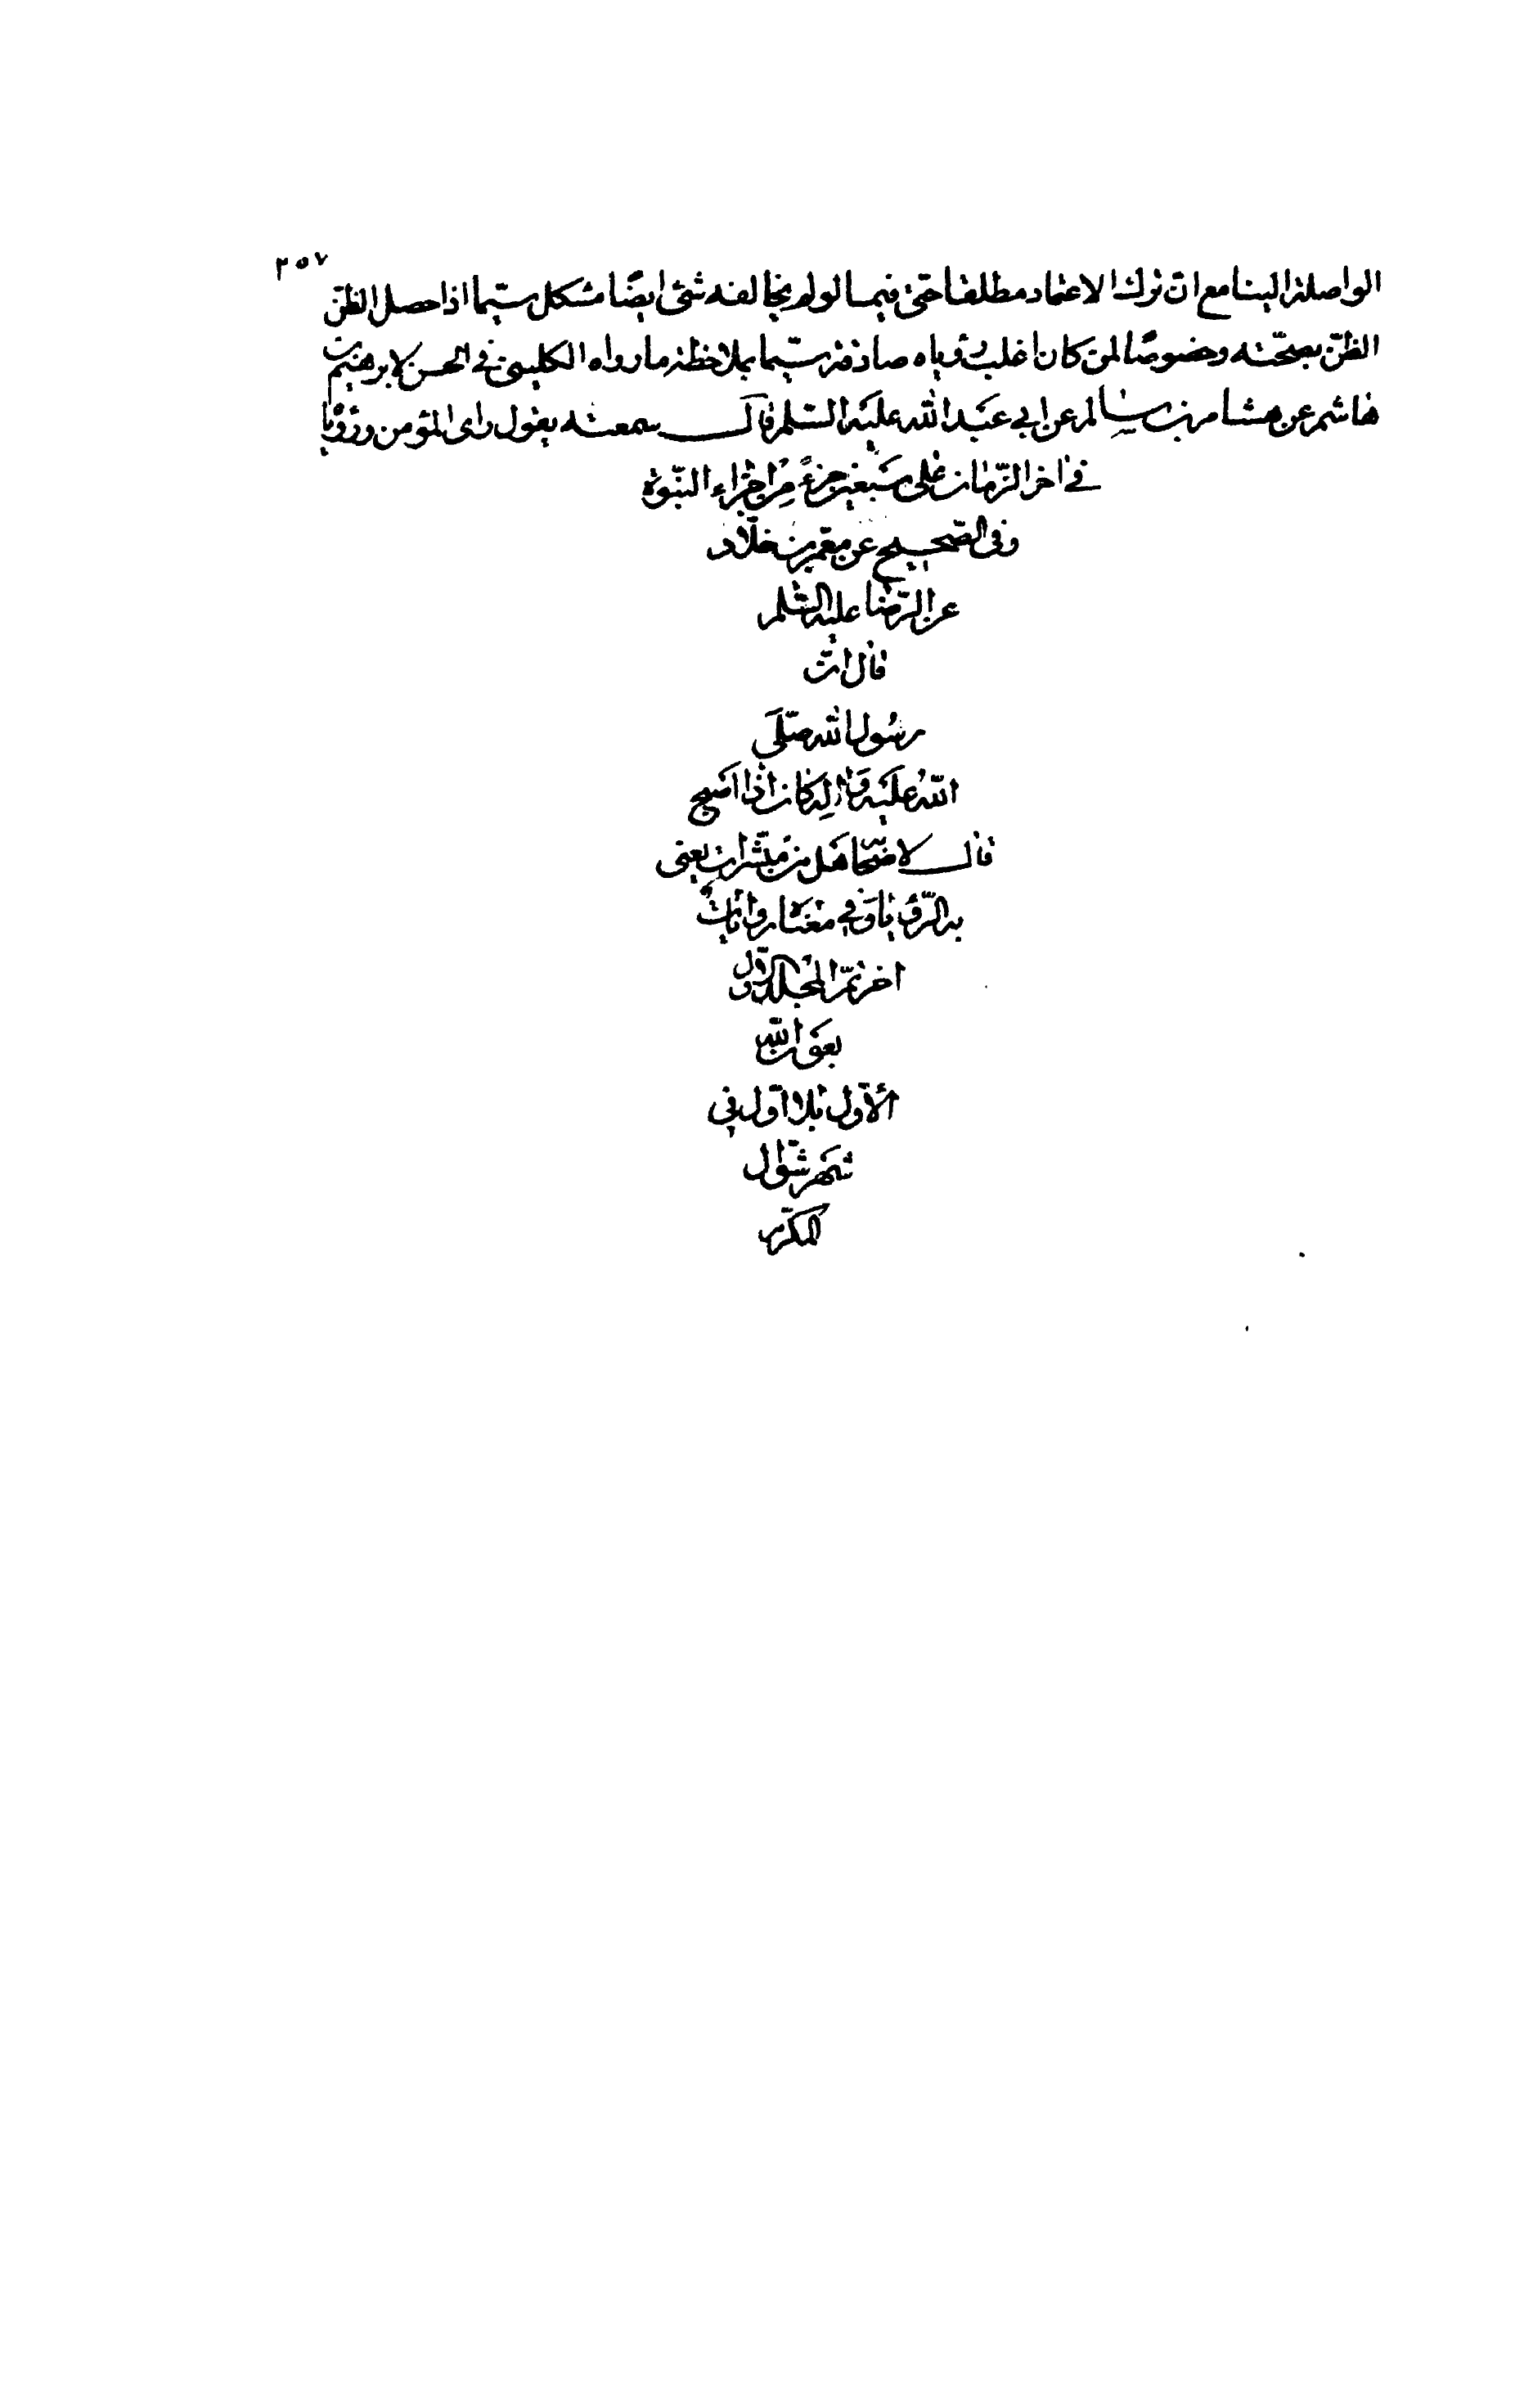 ٢٥٧
الواصلة الينا مع ان ترك الاعتماد مطلقا حتى فيما لو لم يخالفه شئ ايضا مشكل سيما اذا حصل الظن
الظن بصحته وخصوصا لمن كان اغلب رؤياه صادقة سيما بملاحظة ما رواه الكلينى فى الحسن لابرهيم بن
هاشم عن هشام بن سالم عن ابي عبد الله عليه السلم قال سمعته يقول راى المؤمن ورؤيا
فى اخر الزمان على سبعين جزء من اجزاء النبوة
وفى الصحيح عن معمر بن خلاد
عن الرضا عليه السلم
قال ان
رسول الله صلى
الله عليه واله كان اذا اصبح
قال لاصحابه هل من مبشرات يعنى
به الرؤيا وفي معناه روايات
اخر تم المجلد الاول
بعون الله
الاول بلا اول فى
شهر شوال
المكرم